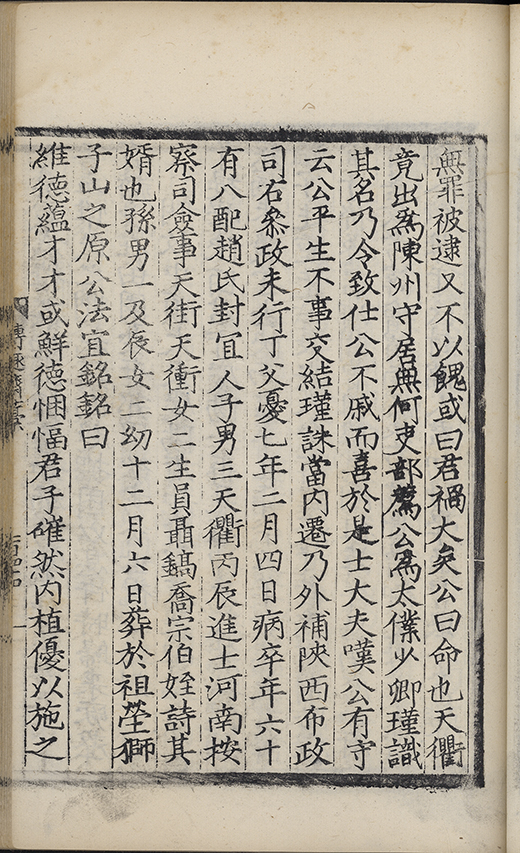 無罪被逮又不以餽或曰君禍大矣公曰命也天衢
竟出爲陳州守居無何吏部薦公爲太僕少卿瑾識
其名乃令致仕公不慼而喜於是士大夫嘆公有守
云公平生不事交結瑾誅當內遷乃外補陝西布政
司右叅政未行丁父憂七年二月四日病卒年六十
有八配趙氏封宜人子男三天衢丙辰進士河南按
察司僉事天街天衝女二生員聶鎬喬宗伯姪詩其
婿也孫男一及辰女二幼十二月六日葬於祖塋獅
子山之原公法宜銘銘曰
維德蘊才才或鮮德悃愊君子確然內植優以施之